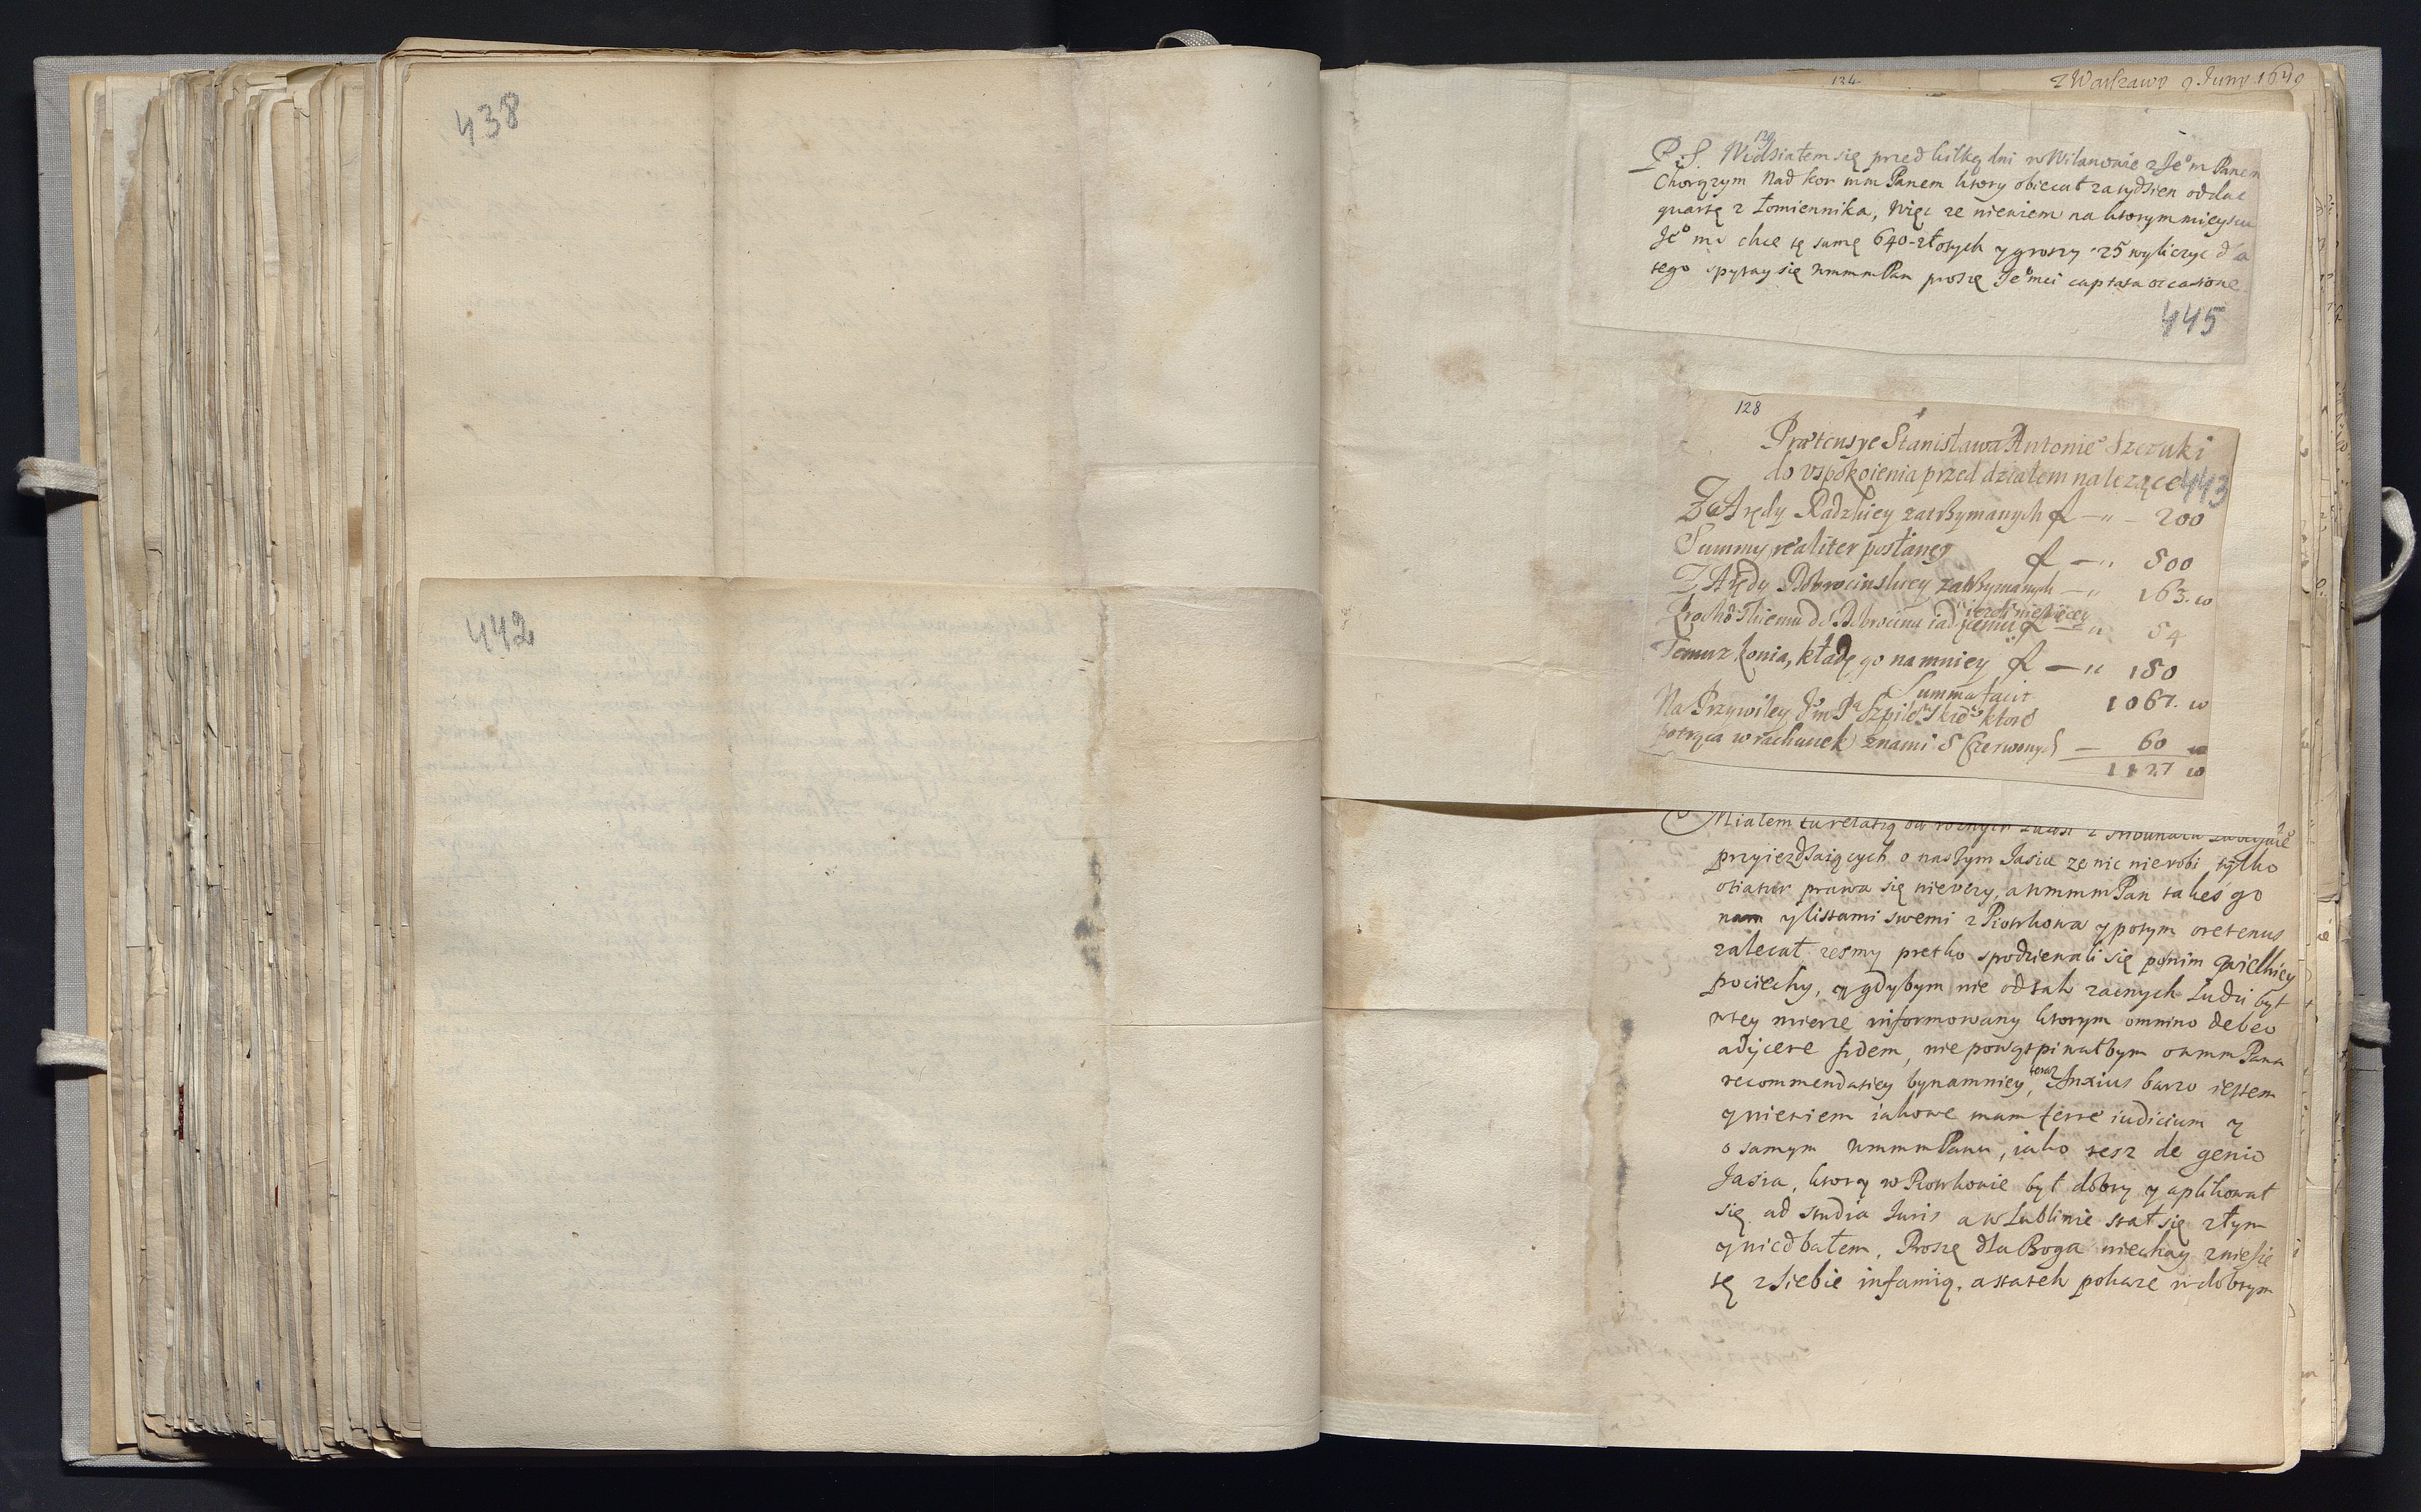 438
442
124
z Warszawy 9 Juny 1690
129
P.S. Widziałem się przed kilką dni w Wilanowie z Je°m Panem
Chorązym Nad kor mm Panem ktory obiecał za tydzien oddac
quartę z Łomiennika, Więc ze niewiem na ktorym mieyscu
Je°mc chce tę sumę 640-złotych y groszy 25 wyliczyc dla
tego spytay się wmmm Pan proszę Je°mci captata occasione
445
128
Prætensye Stanisława Antonie° Szczuki
do vspokoienia przed działem nalezące
443
Z Arędy Radzkiey zatrzymanych f — " — 200
Summy realiter posłaney f — " 500
Z Arędy Dobrocinskiey zatrzymanych — " 163. w
ieżeli nie więcey
do Dobrocina iadącemu f — " 54
konia, kładę go namniey f — " 150
Summa facit 1067. w
Na Przywiley J°m P ktore
potrąca w rachunek znami 5 Czerwonych — 60 w
1127 w
Miałem tu relatią od roznych
przyiezdzaiących o naszym Jasiu ze nic nie robi tylko
otiatur prawa się nie vczy, a wmmm Pan takes go
nam y listami swemi z Piotrkowa y potym oretenus
zalecał zesmy prętko spodziewali się ponim wielkiey
pociechy, y gdybym nie od tak zacnych ludzi był
wtey mierze informowany ktorym omnino debeo
adijcere fidem, nie powątpiwałbym o wmm Pana
recommendatiey bynamniey, teraz Anxius barzo iestem
y niewiem iakowe mam ferre iudicium y
o samym wmmm Panu, iako tesz de genio
Jasia, ktory w Piotrkowie był dobry y aplikował
się ad studia Iuris a w Lublinie stał się złym
y niedbałem. Proszę dla Boga niechay zniesie
tę z siebie infamią, a statek pokaze w dobrym